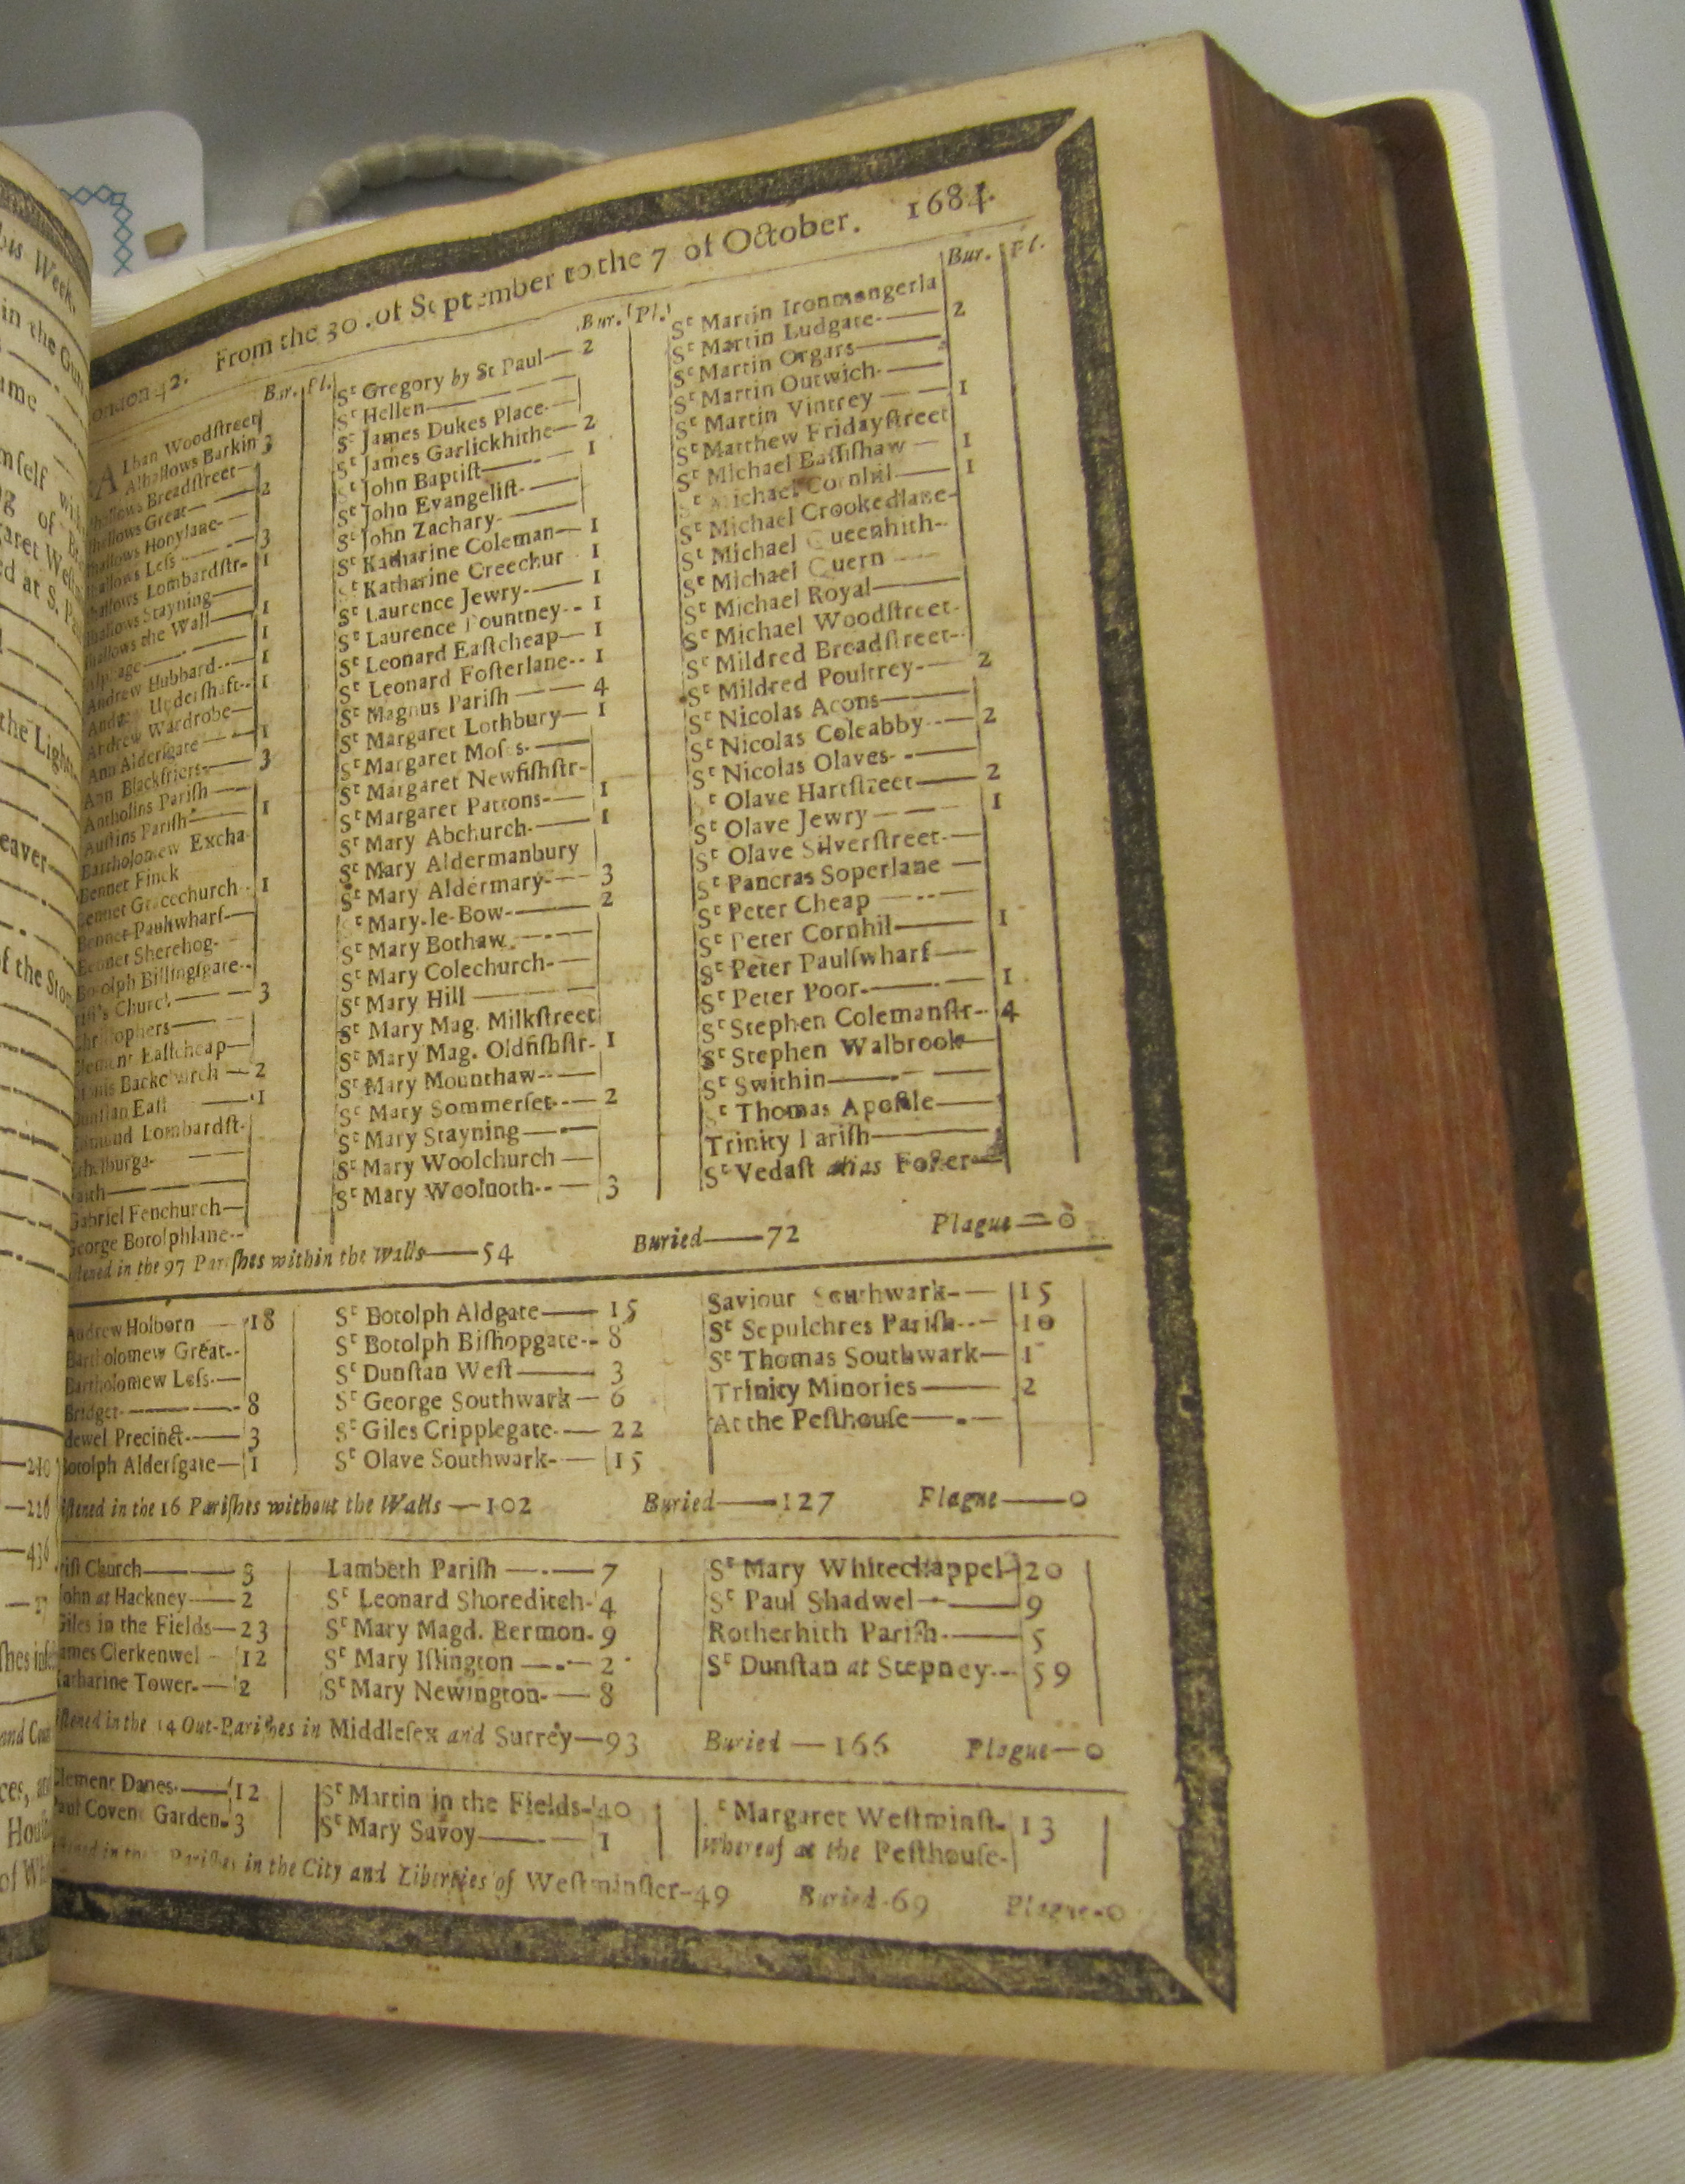 his Week.
in the
London 42. From the 30 of September to the 7 of October. 1684.
Bur. Pl.
Alban Woodstreet
Alhallows Barkin 3
hallows Breadstreet
hallows Great 2
hallows Honylane
hallows Less 3
hallows Lombardstr- 1
hallows Stayning
hallows the Wall 1
Alphage 1
Andrew Hubbard 1
Andrew Undershaft 1
Andrew Wardrobe
Ann Aldersgate 1
Ann Blackfriers 3
Antholins Parish
Austins Parish 1
Bartholomew Excha
Bennet Finck
Bennet Gracechurch 1
Bennet Paulswharf
Bennet Sherehog
Botolph Billingsgate
Church 3
Christophers
Clement Eastcheap
Backchurch 2
Dunstan East 1
Edmund Lombardst.
Ethelburga
Faith
Gabriel Fenchurch
George Botolphlane
Bur. Pl.
Sᵗ Gregory by St Paul 2
Sᵗ Hellen
Sᵗ James Dukes Place
Sᵗ James Garlickhithe 2
Sᵗ John Baptist 1
Sᵗ John Evangelist
Sᵗ John Zachary
Sᵗ Katharine Coleman 1
Sᵗ Katharine Creechur 1
Sᵗ Laurence Jewry 1
Sᵗ Laurence Pountney 1
Sᵗ Leonard Eastcheap 1
Sᵗ Leonard Fosterlane 1
Sᵗ Magnus Parish 4
Sᵗ Margaret Lothbury 1
Sᵗ Margaret Moses
Sᵗ Margaret Newfishstr-
Sᵗ Margaret Pattons 1
Sᵗ Mary Abchurch 1
Sᵗ Mary Aldermanbury
Sᵗ Mary Aldermary 3
Sᵗ Mary-le-Bow 2
Sᵗ Mary Bothaw
Sᵗ Mary Colechurch
Sᵗ Mary Hill
Sᵗ Mary Mag. Milkstreet
Sᵗ Mary Mag. Oldfishstr- 1
Sᵗ Mary Mounthaw
Sᵗ Mary Sommerset 2
Sᵗ Mary Stayning
Sᵗ Mary Woolchurch
Sᵗ Mary Woolnoth 3
Bur. Pl.
Sᵗ Martin Ironmongerla
Sᵗ Martin Ludgate 2
Sᵗ Martin Orgars
Sᵗ Martin Outwich
Sᵗ Martin Vintrey 1
Sᵗ Matthew Fridaystreet
Sᵗ Michael Bassishaw 1
Sᵗ Michael Cornhil 1
Sᵗ Michael Crookedlane
Sᵗ Michael Queenhith
Sᵗ Michael Quern
Sᵗ Michael Royal
Sᵗ Michael Woodstreet
Sᵗ Mildred Breadstreet
Sᵗ Mildred Poultrey 2
Sᵗ Nicolas Acons
Sᵗ Nicolas Coleabby 2
Sᵗ Nicolas Olaves
Sᵗ Olave Hartstreet 2
Sᵗ Olave Jewry 1
Sᵗ Olave Silverstreet
Sᵗ Pancras Soperlane
Sᵗ Peter Cheap
Sᵗ Peter Cornhil 1
Sᵗ Peter Paulswharf
Sᵗ Peter Poor 1
Sᵗ Stephen Colemanstr- 4
Sᵗ Stephen Walbrook
Sᵗ Swithin
Sᵗ Thomas Apostle
Trinity Parish
Sᵗ Vedast alias Foster
stened in the 97 Parishes within the Walls—54 Buried—72 Plague—0
Andrew Holborn 18
Bartholomew Great
Bartholomew Less
Bridget 8
dewel Precinct 3
Botolph Aldersgate 1
Sᵗ Botolph Aldgate 15
Sᵗ Botolph Bishopgate 8
Sᵗ Dunstan West 3
Sᵗ George Southwark 6
Sᵗ Giles Cripplegate 22
Sᵗ Olave Southwark 15
Saviour Southwark 15
Sᵗ Sepulchres Parish 10
Sᵗ Thomas Southwark 1
Trinity Minories 2
At the Pesthouse
stened in the 16 Parishes without the Walls—102 Buried—127 Plague—0
rist Church
John at Hackney 2
Giles in the Fields 23
James Clerkenwel 12
Katharine Tower 2
Lambeth Parish 7
Sᵗ Leonard Shoreditch 4
Sᵗ Mary Magd. Bermon. 9
Sᵗ Mary Islington 2
Sᵗ Mary Newington 8
Sᵗ Mary Whitechappel 20
Sᵗ Paul Shadwel 9
Rotherhith Parish 5
Sᵗ Dunstan at Stepney 59
stened in the 14 Out-Parishes in Middlesex and Surrey—93 Buried—166 Plague—0
Clement Danes 12
Paul Covent Garden 3
Sᵗ Martin in the Fields 40
Sᵗ Mary Savoy 1
Sᵗ Margaret Westminst- 13
Whereof at the Pesthouse
Parishes in the City and Liberties of Westminster-49 Buried-69 Plague-0